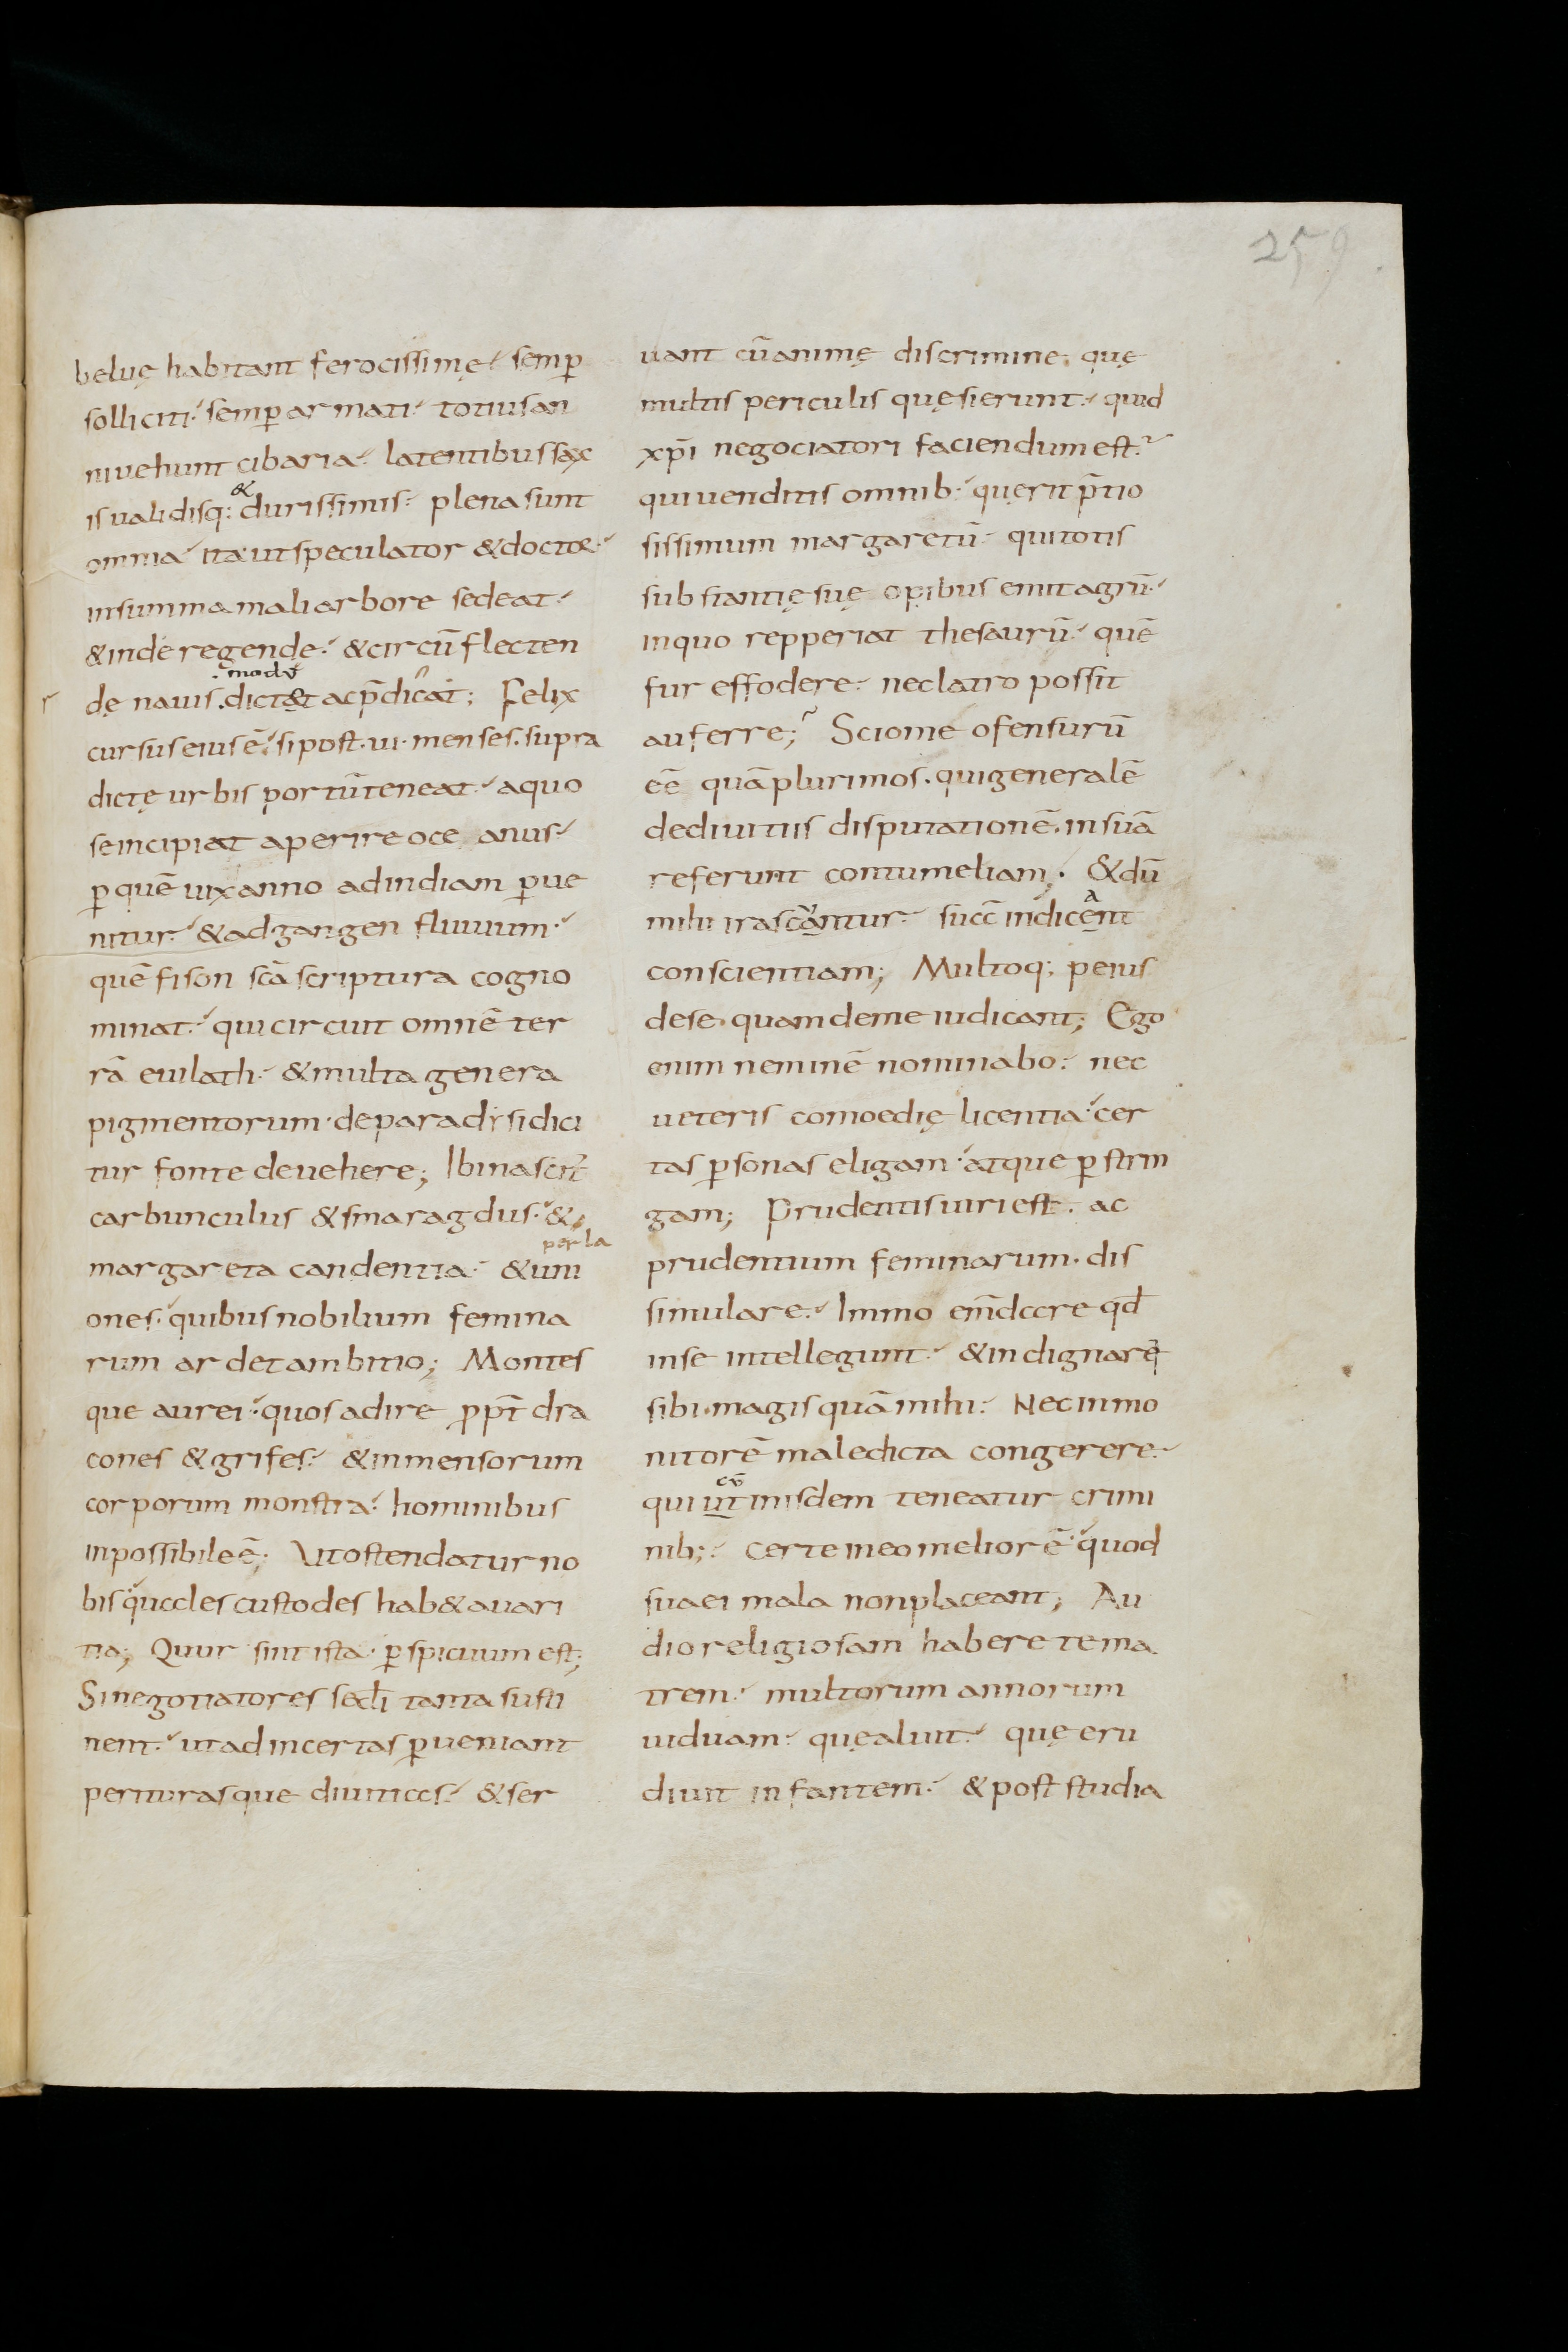 259
beluę habitant ferocissimę semp̄
solliciti semp̄ armati totius an
ni uehunt cibaria latentibus sax
&
is ualidisq: durissimis plena sunt
omnia ita ut speculator & doctor
in summa mali arbore sedeat
& inde regende & circū flecten
modū
r
dę nauis dictet ac p̄dicat; Felix
cursus eius ē si post ui menses supra
dictę urbis portū teneat a quo
se incipiat aperire oce anus
p̄ quē uix anno ad indiam p̄ue
nitur & ad gangen fluuium
quē fison scā scriptura cogno
minat qui circuit omnē ter
rā euilath & multa genera
pigmentorum de paradysi dici
tur fonte deuehere; Ibi nascit̄
carbunculus & smaragdus &
perla
margareta candentia & uni
ones quibus nobilium femina
rum ardet ambitio; Montes
que aurei quos adire ppt̄ dra
cones & grifes & inmensorum
corporum monstra hominibus
inpossibile ē; Ut ostendatur no
bis quales custodes hab& auari
tia; Quur sint ista p̄spicuum est;
Si negotiatores sæcl̄i tanta susti
nent ut ad incertas p̄ueniant
periturasque diuitias & ser
uant cū animę discrimine quę
multis periculis quęsierunt quid
xp̄i negociatori faciendum est
qui uenditis omnib: querit p̄tio
sissimum margaretū qui totis
substantię suę opibus emit agrū
in quo repperiat thesaurū quē
fur effodere nec latro possit
auferre; Scio me ofensurū
eē quā plurimos qui generalē
de diuitiis disputationē in suā
referunt contumeliam & dū
a
mihi irascantur succ̄ indicent
conscientiam; Multoq; peius
de se quam de me iudicant; Ego
enim neminē nominabo nec
ueteris comoedię licentia cer
tas p̄sonas eligam atque p̄strin
gam; Prudentis uiri est ac
prudentium feminarum dis
simulare Immo em̄dare qd̄
in se intellegunt & indignarę
sibi magis quā mihi Nec in mo
nitorē maledicta congerere
cū
qui ut in isdem teneatur crimi
nib; certe in eo melior ē quod
sua ei mala non placeant; Au
dio religiosam habere te ma
trem multorum annorum
uiduam quę aluit quę eru
diuit infantem & post studia